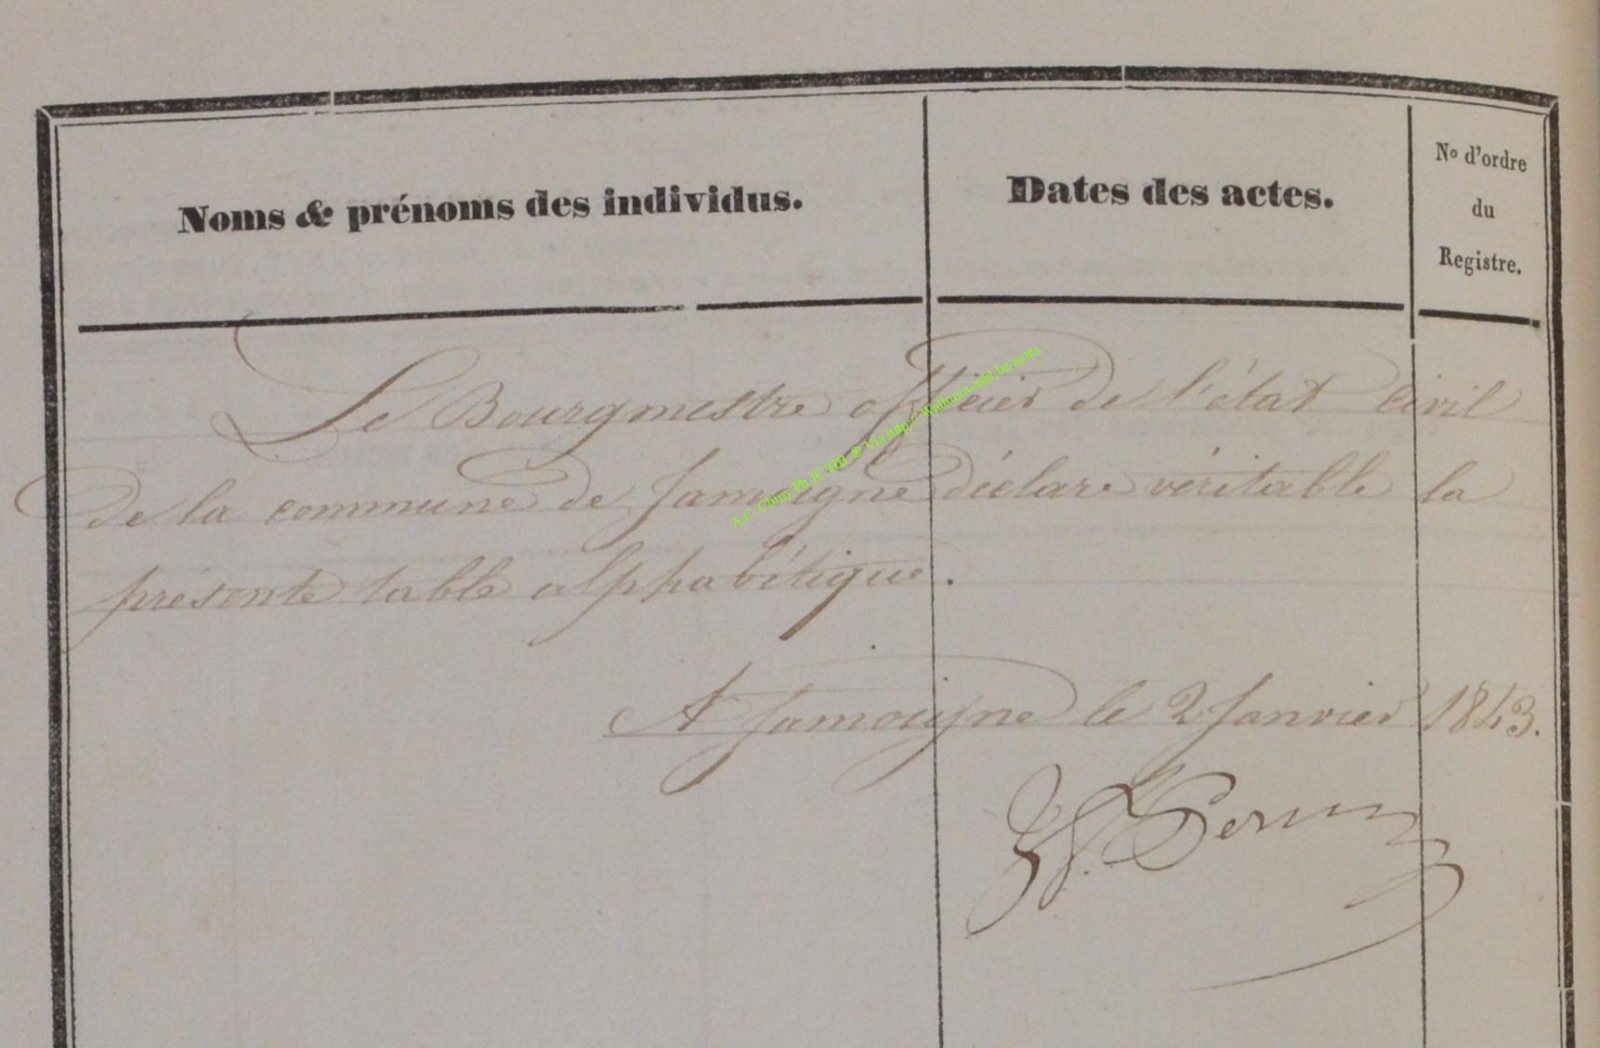 Noms & prénoms des individus.
Dates des actes.
No d'ordre
du
Registre.
Le Bourgmestre officier de l'état civil
de la commune de Jamoigne déclare véritable la
présente table alphabétique.
A Jamoigne le 2 Janvier 1843.